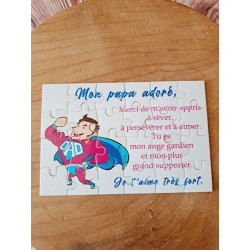 Mon papa adoré,
Merci de m'avoir appris
à rêver,
à persévérer et à aimer.
Tu es
mon ange gardien
et mon plus
grand supporter.
DAD
Je t'aime très fort.